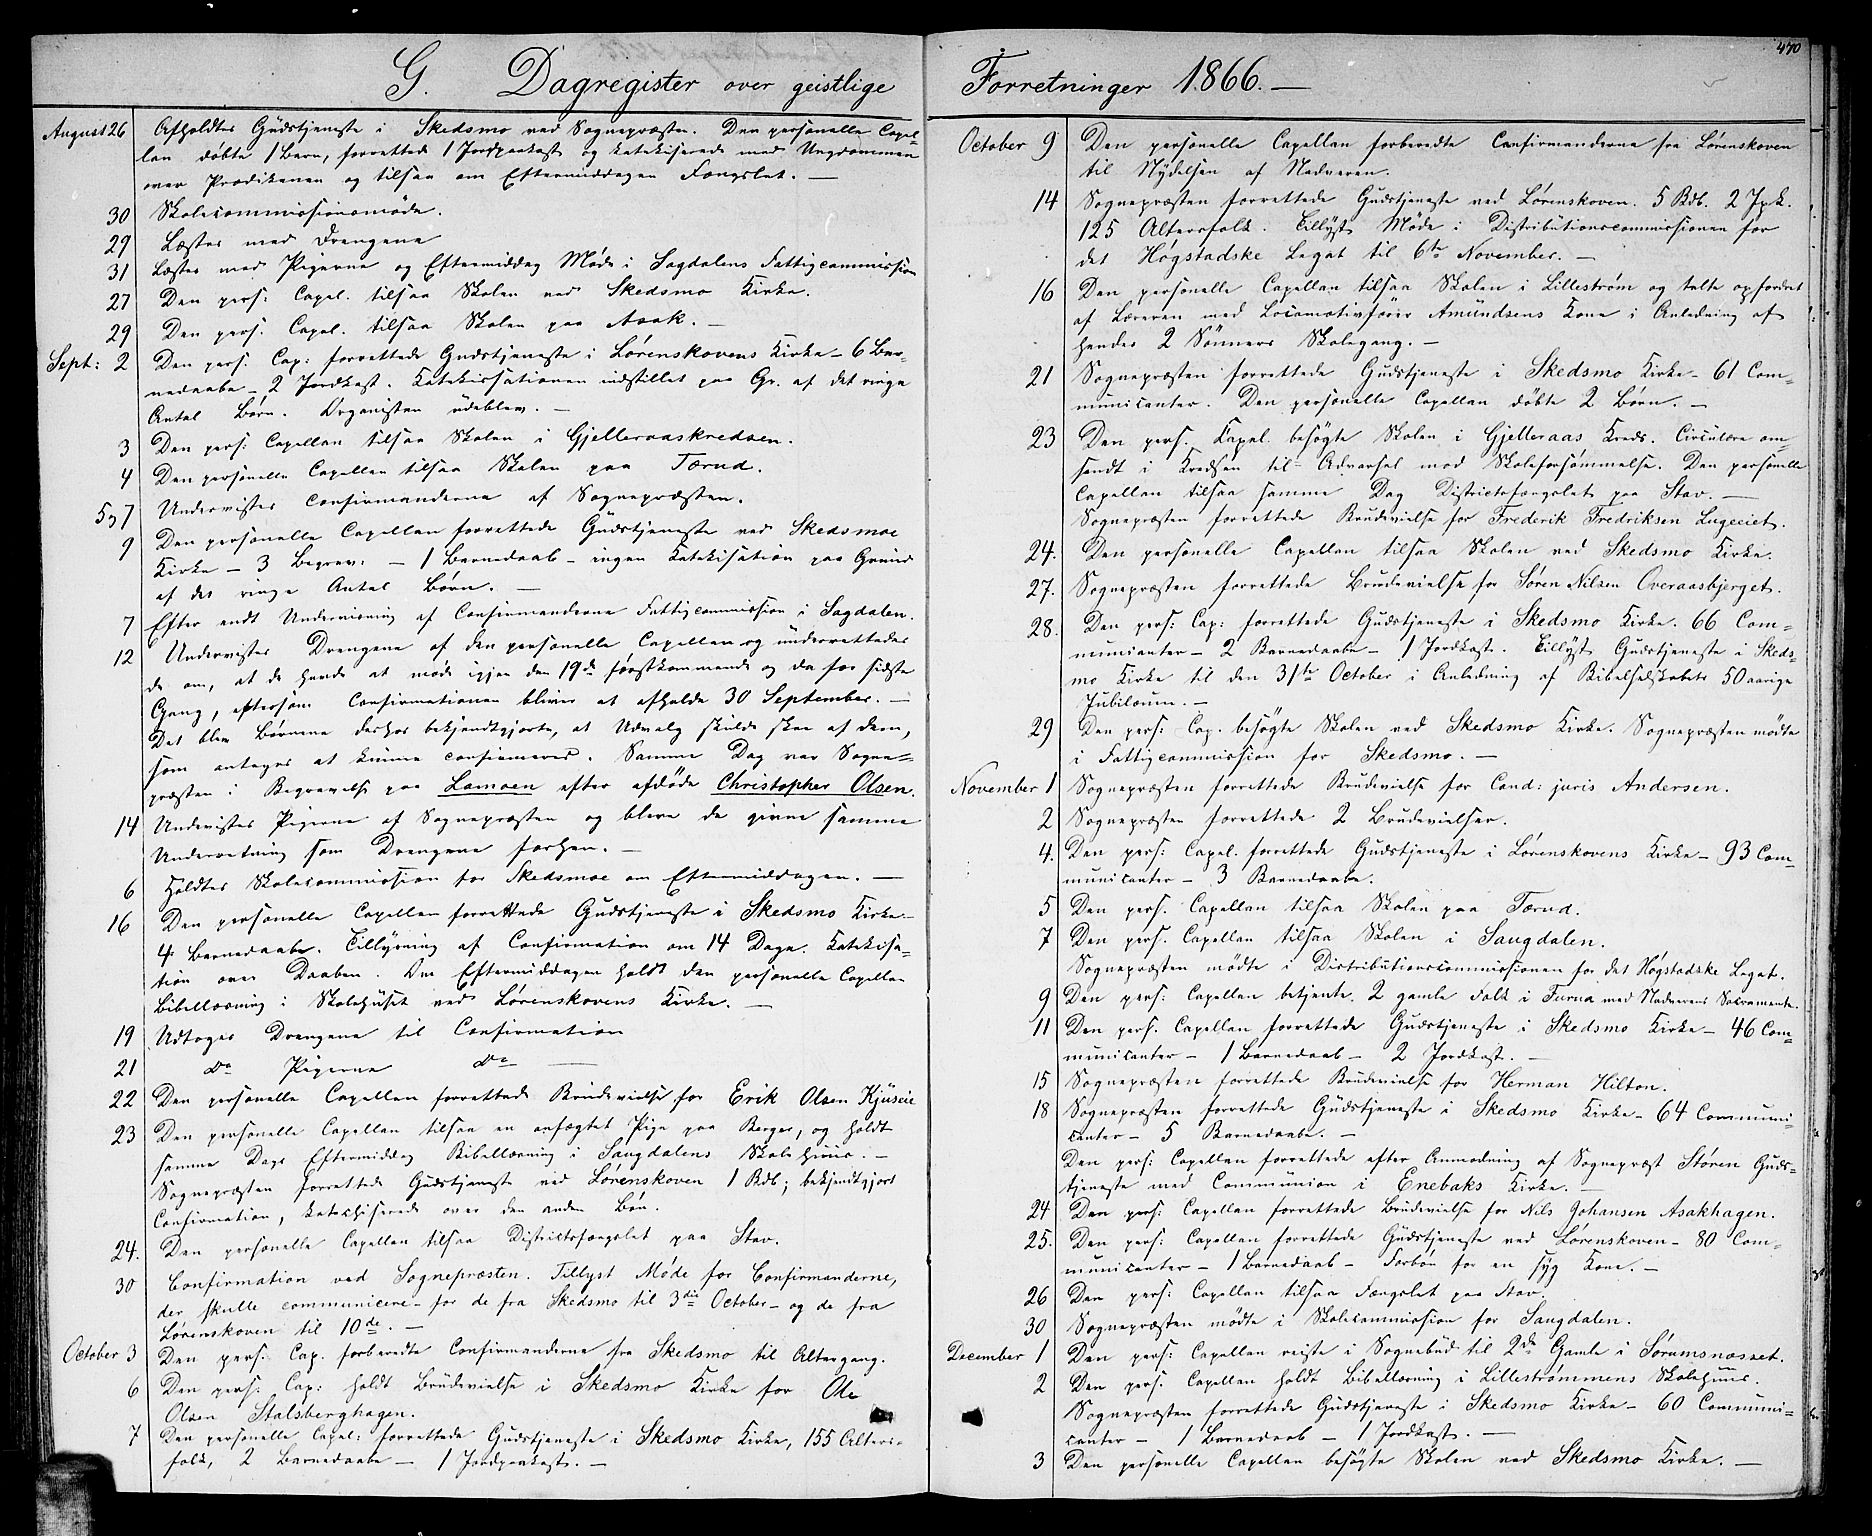 470
G. Dagregister over geistlige Forretninger 1866. —
August 26 Afholdtes Gudstjeneste i Skedsmo ved Sognepræsten. Den personelle Capel-
lan døbte 1 Barn, forrettede 1 Jordpaakast og katekiserede med Ungdommen
over Prædikenen og tilsaa om Eftermiddagen Fængslet. —
30 Skolecommissionsmøde.
29 Læstes med Drengene
31 Læstes med Pigerne og Eftermiddag Møde i Sagdalens Fattigcommission
27 Den pers: Capel. tilsaa Skolen ved Skedsmo Kirke.
29 Den pers. Capel. tilsaa Skolen paa Asak. —
Sept: 2 Den pers. Cap: forrettede Gudstjeneste i Lørenskovens Kirke – 6 Bar-
nedaabe – 2 Jordkast. Katekisationen indstillet paa Gr. af det ringe
Antal Børn. Organisten udeblev. —
3 Den pers: Capellan tilsaa Skolen i Gjelleraaskredsen.
4 Den personelle Capellan tilsaa Skolen paa Tærud.
5 og 7 Undervistes Confirmanderne af Sognepræsten.
9 Den personelle Capellan forrettede Gudstjeneste ved Skedsmoe
Kirke – 3 Begrav: – 1 Barnedaab – ingen Katekisation paa Grund
af det ringe Antal Børn. —
7 Efter endt Undervisning af Confirmanderne Fattigcommission i Sagdalen.
12 Undervistes Drengene af den personelle Capellan og underrettedes
de om, at de havde at møde igjen den 19de førstkommende og da for sidste
Gang, eftersom Confirmationen bliver at afholde 30 September. —
Det blev Børnene derhos bekjendtgjorte, at Udvalg skulde skee af dem,
som antages at kunne confirmeres. Samme Dag var Sogne-
præsten i Begravelse paa Lamoen efter afdøde Christopher Olsen.
14 Undervistes Pigerne af Sognepræsten og bleve de givne samme
Underretning som Drengene forhen. —
6 Holdtes Skolecommission for Skedsmoe om Eftermiddagen. —
16 Den personelle Capellan forrettede Gudstjeneste i Skedsmo Kirke –
4 Barnedaabe. Tillysning af Confirmation om 14 Dage. Katekisa-
tion over Daaben. Om Eftermiddagen holdt den personelle Capellan
Bibellæsning i Skolehuset ved Lørenskovens Kirke. —
19 Udtoges Drengene til Confirmation
21 do Pigerne do —
22 Den personelle Capellan forrettede Brudevielse for Erik Olsen Kjuseie
23 Den personelle Capellan tilsaa en anfægtet Pige paa Berger, og holdt
samme Dags Eftermiddag Bibellæsning i Saugdalens Skolehuus. —
Sognepræsten forrettede Gudstjeneste ved Lørenskoven 1 Bdb; bekjendtgjort
Confirmation, katechiserede over den anden Bøn.
24. Den personelle Capellan tilsaa Districtsfængslet paa Stav.
30 Confirmation ved Sognepræsten. Tillyst Møde for Confirmanderne,
der skulle communicere – for de fra Skedsmo til 3die October – og de fra
Lørenskoven til 10de. —
October 3 Den pers. Cap. forberedte Confirmanderne fra Skedsmo til Altergang.
6 Den pers: Cap: holdt Brudevielse i Skedsmo Kirke for Ole
Olsen Stalsberghagen.
7 Den personelle Capel: forrettede Gudstjeneste i Skedsmo Kirke, 155 Alters-
folk, 2 Barnedaabe – 1 Jordpaakast. —
October 9 Den personelle Capellan forberedte Confirmanderne fra Lørenskoven
til Nydelsen af Nadveren.
14 Sognepræsten forrettede Gudstjeneste ved Lørenskoven. 5 Bdb. 2 Jpk.
125 Altersfolk. Tillyst Møde i Distributionscommissionen for
det Høgstadske Legat til 6te November. —
16 Den personelle Capellan tilsaa Skolen i Lillestrøm og talte opfordret
af Læreren med Locomotivfører Amundsens Kone i Anledning af
hendes 2 Sønners Skolegang. —
21 Sognepræsten forrettede Gudstjeneste i Skedsmo Kirke – 61 Com-
municanter. Den personelle Capellan døbte 2 Børn. —
23 Den pers. Kapel. besøgte Skolen i Gjelleraas Kreds. Circulære om-
sendt i Kredsen til Advarsel mod Skoleforsømmelse. Den personelle
Capellan tilsaa samme Dag Districtsfængslet paa Stav. —
Sognepræsten forrettede Brudevielse for Frederik Fredriksen Lugeeiet.
24. Den personelle Capellan tilsaa Skolen ved Skedsmo Kirke.
27. Sognepræsten forrettede Brudevielse for Søren Nilsen Overaasbjerget.
28. Den pers: Cap: forrettede Gudstjeneste i Skedsmo Kirke. 66 Com-
municanter – 2 Barnedaabe – 1 Jordkast. Tillyst Gudstjeneste i Skeds-
mo Kirke til den 31te October i Anledning af Bibelselskabets 50 aarige
Jubilæum. —
29 Den pers: Cap. besøgte Skolen ved Skedsmo Kirke. Sognepræsten mødte
i Fattigcommission for Skedsmo. —
November 1 Sognepræsten forrettede Brudevielse for Cand: juris Andersen.
2 Sognepræsten forrettede 2 Brudevielser.
4. Den pers: Capel. forrettede Gudstjeneste i Lørenskovens Kirke – 93 Com-
municanter – 3 Barnedaabe.
5 Den pers. Capellan tilsaa Skolen paa Tærud.
7 Den pers. Capellan tilsaa Skolen i Saugdalen.
Sognepræsten mødte i Distributionscommissionen for det Høgstadske Legat.
9 Den pers: Capellan betjente 2 gamle Folk i Furua med Nadverens Sacramente.
11 Den pers. Capellan forrettede Gudstjeneste i Skedsmo Kirke – 46 Com-
municanter – 1 Barnedaab – 2 Jordkast. —
15 Sognepræsten forrettede Brudevielse for Herman Hilton.
18 Sognepræsten forrettede Gudstjeneste i Skedsmo Kirke – 64 Communi-
canter – 5 Barnedaabe. —
Den pers: Capellan forrettede efter Anmodning af Sognepræst Støren Guds-
tjeneste med Communion i Enebaks Kirke. —
24 Den pers: Capellan forrettede Brudevielse for Nils Johansen Asakhagen.
25. Den pers: Capellan forrettede Gudstjeneste ved Lørenskoven – 80 Com-
municanter – 1 Barnedaab – Forbøn for en syg Kone. —
26 Den pers: Capellan tilsaa Fængslet paa Stav.
30 Sognepræsten mødte i Skolecommission for Saugdalen.
December 1 Den pers: Capellan reiste i Sognebud til 2de Gamle i Sørumsnæsset.
2 Den pers. Capellan holdt Bibellæsning i Lillestrømmens Skolehuus.
Sognepræsten forrettede Gudstjeneste i Skedsmo Kirke – 60 Communi-
canter – 1 Barnedaab – 1 Jordkast. —
3 Den personelle Capellan besøgte Skolen ved Skedsmo Kirke. —